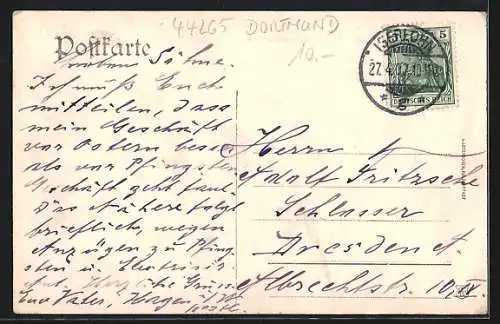 44265 DORTMUND
10.-
Postkarte
ISERLOHN
27.4.07.
5
DEUTSCHES REICH
Söhne.
Ich muß Euch
mitteilen, dass
mein Geschäft
vor Ostern besser
als vor Pfingsten
Geschäft geht faul.
Das Nähere folgt
brieflich, wegen
Anzügen zu Pfing-
sten u.
Herzliche Grüsse
Euer Vater, Hagen i/W
Herrn
Adolf Fritzsche
Schlosser
Dresden A.
Albrechtstr. 10, IV.